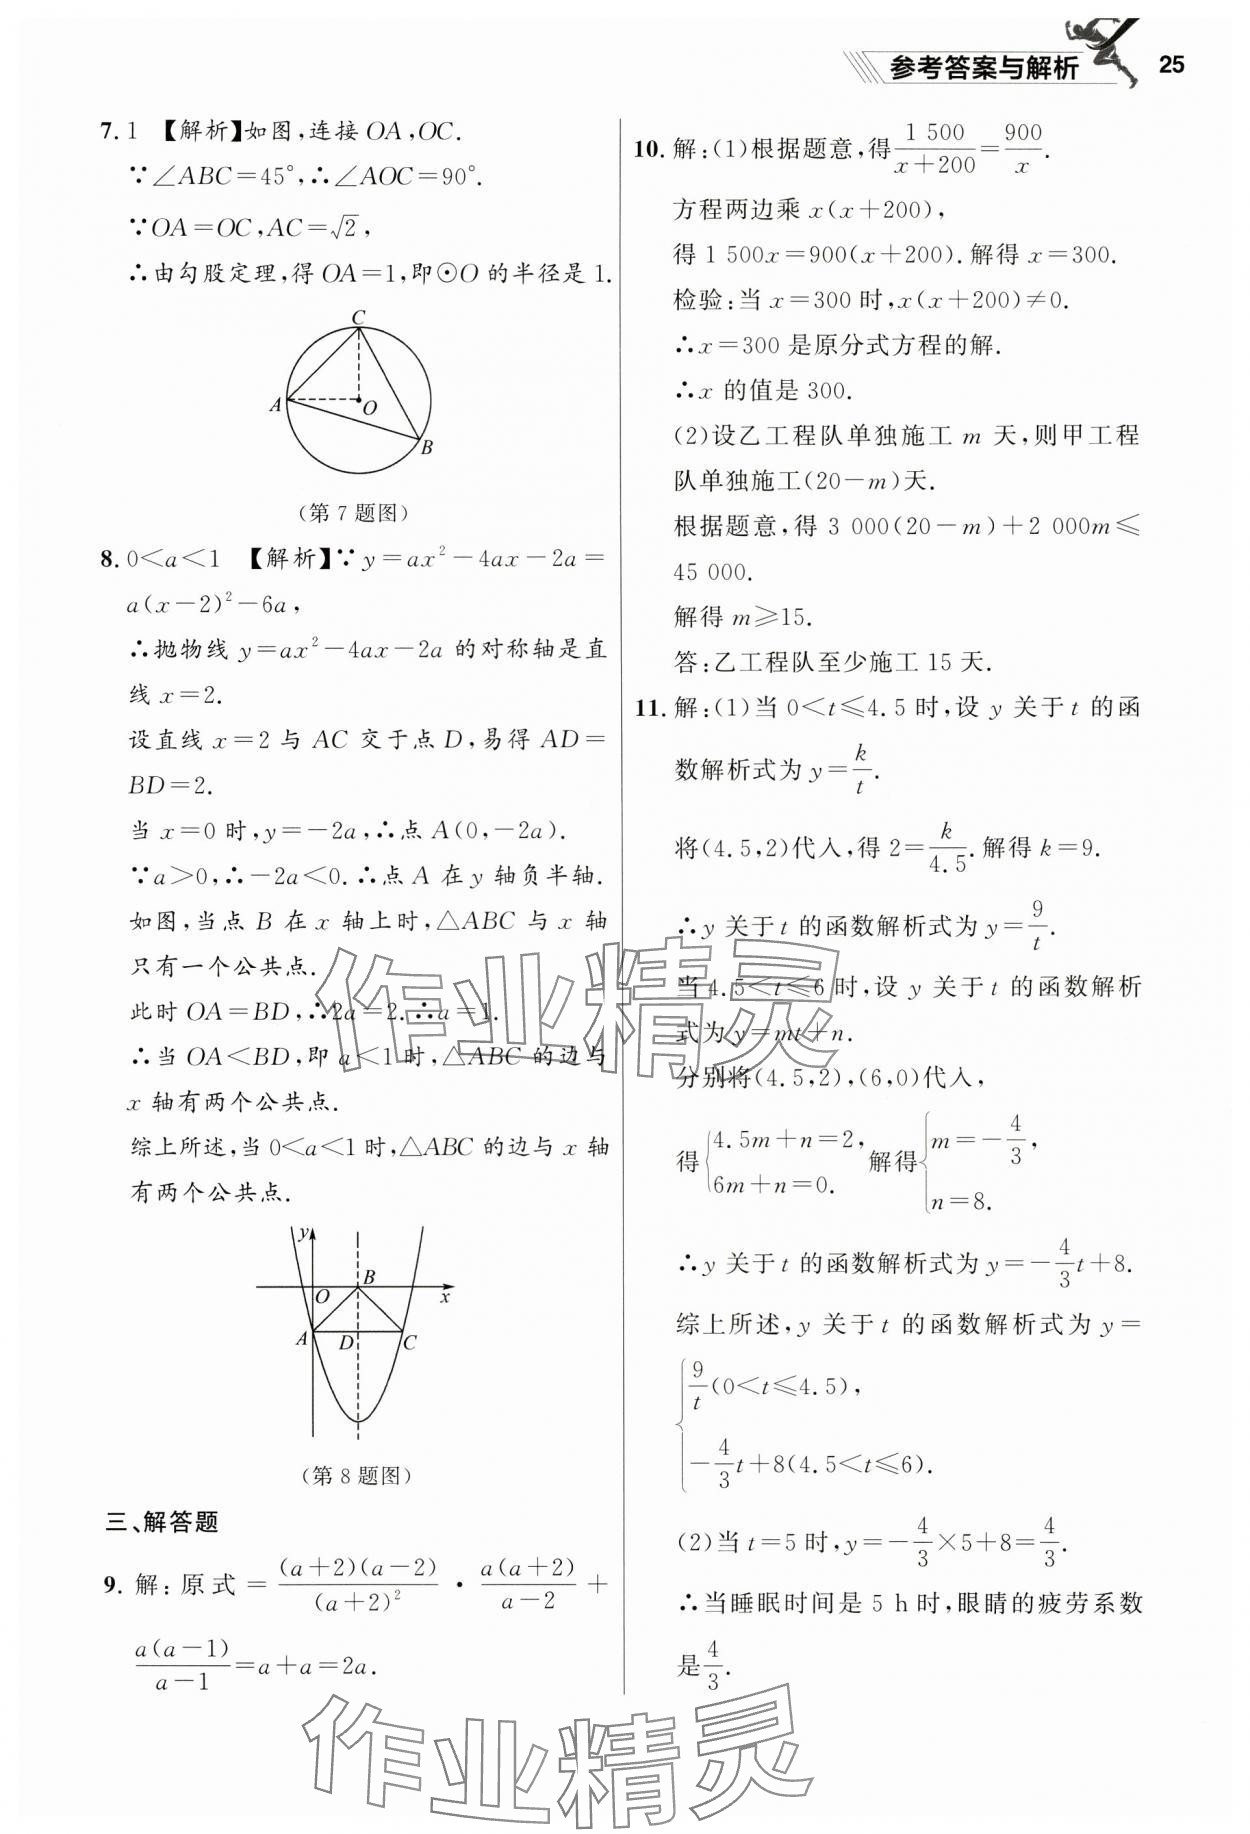 参考答案与解析 25
7. 1 【解析】如图,连接 OA,OC.
∵∠ABC=45°,∴∠AOC=90°.
∵OA=OC,AC=√2,
∴由勾股定理,得 OA=1,即⊙O 的半径是 1.
C
A
O
B
(第 7 题图)
8. 0<a<1 【解析】∵y=ax²-4ax-2a=
a(x-2)²-6a,
∴抛物线 y=ax²-4ax-2a 的对称轴是直
线 x=2.
设直线 x=2 与 AC 交于点 D,易得 AD=
BD=2.
当 x=0 时,y=-2a,∴点 A(0,-2a).
∵a>0,∴-2a<0.∴点 A 在 y 轴负半轴.
如图,当点 B 在 x 轴上时,△ABC 与 x 轴
只有一个公共点.
此时 OA=BD,∴2a=2.∴a=1.
∴当 OA<BD,即 a<1 时,△ABC 的边与
x 轴有两个公共点.
综上所述,当 0<a<1 时,△ABC 的边与 x 轴
有两个公共点.
y
B
O
x
A
D
C
(第 8 题图)
三、解答题
9. 解:原式=(a+2)(a-2)/(a+2)² · a(a+2)/(a-2) +
a(a-1)/(a-1)=a+a=2a.
10. 解:(1)根据题意,得 1 500/(x+200)=900/x.
方程两边乘 x(x+200),
得 1 500x=900(x+200).解得 x=300.
检验:当 x=300 时,x(x+200)≠0.
∴x=300 是原分式方程的解.
∴x 的值是 300.
(2)设乙工程队单独施工 m 天,则甲工程
队单独施工(20-m)天.
根据题意,得 3 000(20-m)+2 000m≤
45 000.
解得 m≥15.
答:乙工程队至少施工 15 天.
11. 解:(1)当 0<t≤4.5 时,设 y 关于 t 的函
数解析式为 y=k/t.
将(4.5,2)代入,得 2=k/4.5.解得 k=9.
∴y 关于 t 的函数解析式为 y=9/t.
当 4.5<t≤6 时,设 y 关于 t 的函数解析
式为 y=mt+n.
分别将(4.5,2),(6,0)代入,
得{4.5m+n=2, 6m+n=0. 解得{m=-4/3, n=8.
∴y 关于 t 的函数解析式为 y=-4/3t+8.
综上所述,y 关于 t 的函数解析式为 y=
{9/t(0<t≤4.5),
-4/3t+8(4.5<t≤6).
(2)当 t=5 时,y=-4/3×5+8=4/3.
∴当睡眠时间是 5 h 时,眼睛的疲劳系数
是4/3.
作业精灵
作业精灵